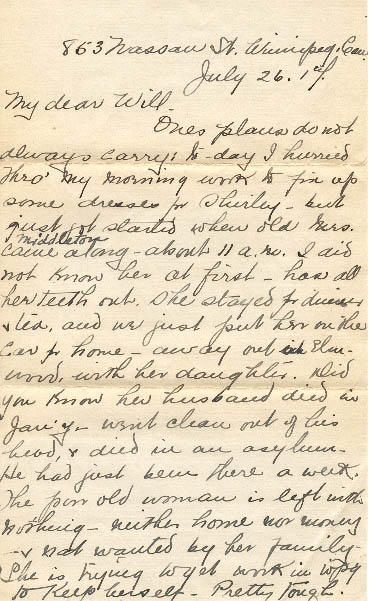 853 Nassau St. Winnipeg. Can.
July 26. 19
My dear Will -
Ones plans do not
always carry: to-day I hurried
thro' my morning work to fix up
some dresses for Shirley - but
just got started when old Mrs.
Middleton
came along - about 11 a.m. I did
not know her at first - has all
her teeth out. She stayed for dinner
& tea, and we just put her on the
car for home - away out in Elm-
wood, with her daughter. Did
you know her husband died in
Jan'y - went clean out of his
head, & died in an asylum -
He had just been there a week.
The poor old woman is left with
nothing - neither home nor money
- & not wanted by her family -
She is trying to get work in Wpg
to keep herself - Pretty Tough.